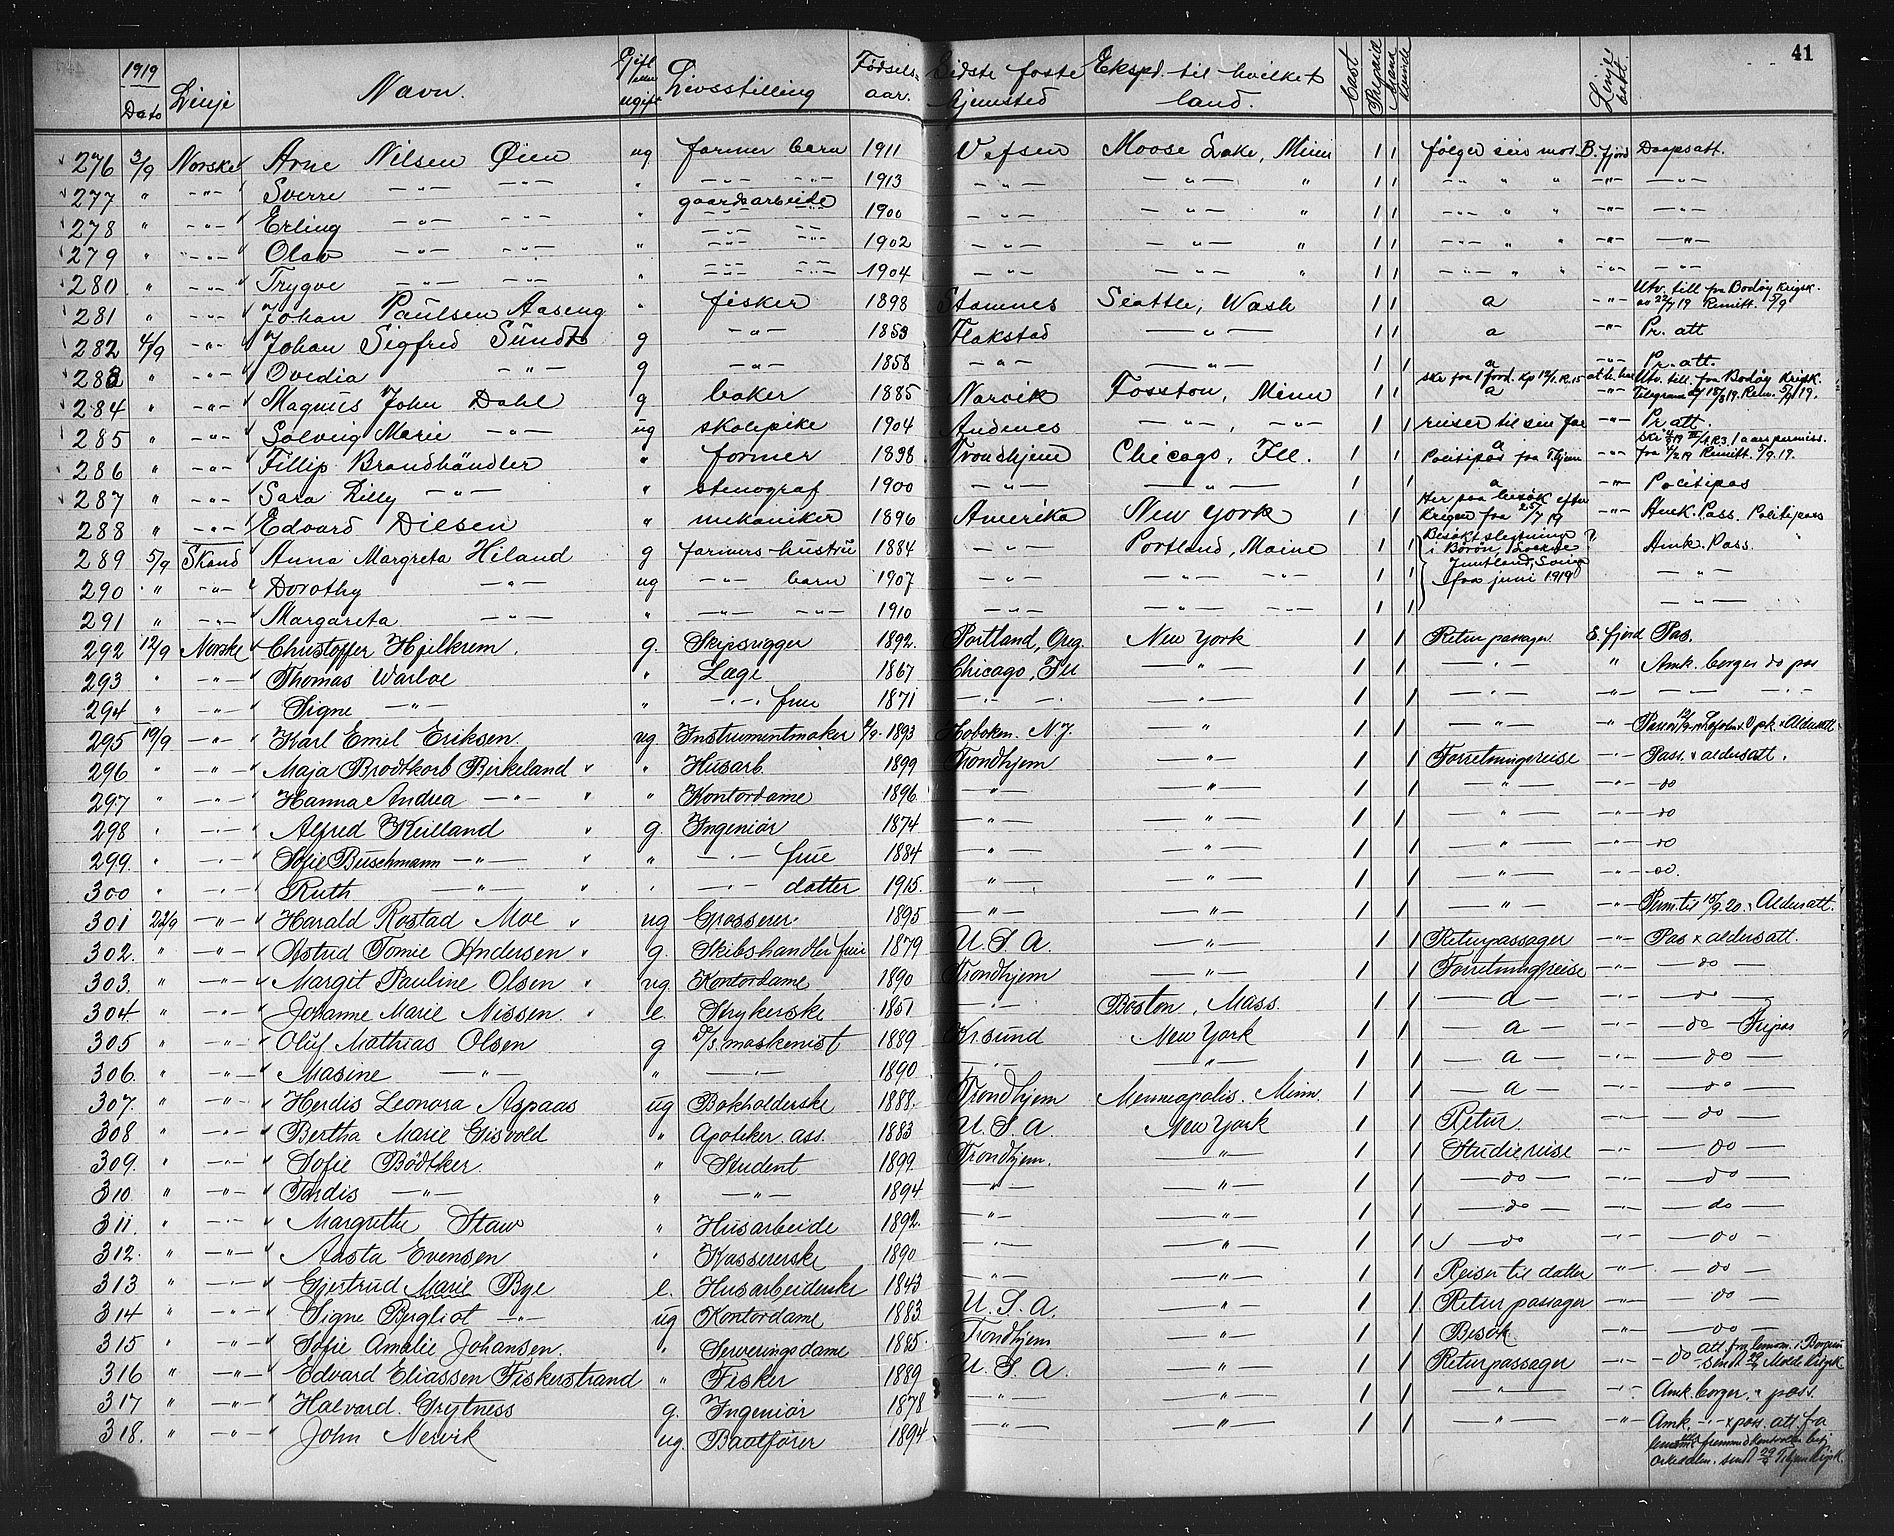 41
1919 Dato Linje Navn. Gift eller ugift Livsstilling Fødsels-aar. Sidste faste hjemsted Ekspd. til hvilket land. Cast Prepaid Mand Kvinde Linje baat
276 3/9 Norske Arne Nilsen Øien ug farmer barn 1911 Vefsen Moose Lake, Minn 1 1 følger sin mor B. fjord Daapsatt.
277 " -"- Sverre -"- -"- " -"- -"- 1913 -"- -"- " 1 1 -"- " " -"- -"-
278 " -"- Erling -"- -"- " gaardsarbeide 1900 -"- -"- " 1 1 -"- " " -"- -"-
279 " -"- Olav -"- -"- " -"- -"- 1902 -"- -"- " 1 1 -"- " " -"- -"-
280 " -"- Trygve -"- -"- " -"- -"- 1904 -"- -"- " 1 1 -"- " " -"- -"-
281 " -"- Johan Paulsen Aaseng " fisker 1898 Stamnes Seattle, Wash 1 1 a -"- Utv. till fra Bodøy Krigsk. av 22/7 19 Remitt. 5/9
282 4/9 -"- Johan Sigfred Sundt g -"- 1853 Flakstad -"- 1 1 a -"- Pr. att
283 " -"- Ovedia -"- g -"- 1858 -"- -"- 1 1 a -"- Pr. att.
284 " -"- Magnus John Dahl g baker 1885 Narvik Fosston, Minn 1 1 a -"- Utv. till. fra Bodøy Krigsk.
285 " -"- Solveig Marie -"- ug skolepike 1904 Andenes -"-, -"- 1 1 reiser til sin far -"- Pr. att.
286 " -"- Fillip Brandhändler " former 1898 Trondhjem Chicago, Ill. 1 1 a Politipas fra Thjem -"-
287 " -"- Sara Lilly -"- " stenograf 1900 -"- -"- 1 1 a -"- Politipas
288 " -"- Edvard Dilsen " mekaniker 1896 Amerika New York 1 1 Her paa besøk efter krigen fra 25/7 19 -"- Amk. Pass. Politipass
289 5/9 Skand Anna Margreta Hiland g farmers hustru 1884 -"- Portland, Maine 1 1 Besøkt slegtninge i Jemtland, fra juni 1919 ? Amk. Pass.
290 " -"- Dorothy -"- ug -"- barn 1907 -"- -"- -"- 1 1 -"-
291 " -"- Margareta -"- " -"- -"- 1910 -"- -"- -"- 1 1 -"-
292 12/9 Norske Christoffer Hjelkrem. g. Skipsrigger 1892. Portland, Oreg. New York 1 1 Retur passager E. fjord Pas.
293 " -"- Thomas Warloe " Læge 1867 Chicago, Ill -"- 1 1 -"- " Amk. borger do pas
294 " -"- Signe -"- " -"- frue 1871 -"- -"- 1 1 -"- -"- -"- -"-
295 19/9 -"- Karl Emil Eriksen. ug Instrumentmaker 1893 Hoboken. N.J. " 1 1 -"- "
296 " -"- Maja Brodtkorb Birkeland " " Husarb. 1899 Trondhjem -"- 1 1 Forretningsreise -"- Pas. x aldersatt.
297 " -"- Hanna Andrea -"- " " Kontordame 1896. -"- -"- 1 1 -"- " -do
298 " -"- Alfred Keilland " g. Ingeniør 1874 -"- -"- 1 1 -"- -"- -do
299. " -"- Sofie Buschmann -"- " " -"- frue 1884 -"- -"- 1 1 -"- -"- -do
300 " -"- Ruth -"- " " -"- datter 1915. -"- -"- 1 1 -"- -"- -do.
301 22/9 -"- Harald Rostad Moe " ug Grosserer. 1895 -"- -"- 1 1 -"- -"- Perm. til 15/9. 20. x Aldersatt.
302. " -"- Astrid Tomie Andersen " g. Skibshandler frue 1879 U.S.A. -"- 1 1 Returpassager -"- Pas x aldersatt.
303. " -"- Margit Pauline Olsen " ug Kontordame 1890 Trondhjem -"- 1 1 Forretningsreise -"- -do-
304 " -"- Johanne Marie Nissen. " e. Strykerske 1851 -"- Boston, Mass. 1 1 -a- -"- -do-
305 " -"- Oluf Mathias Olsen g D/S. maskenist 1889 Krsund New York 1 1 -a- -"- -do- Fripas
306. " -"- Masine -"- " -"- 1890 -"- -"- 1 1 -a- -"- -do-
307. " -"- Herdis Leonora Aspaas ug Bokholderske 1888. Trondhjem Menneapolis. Minn. 1 1 -a- -"- -do-
308 " -"- Bertha Marie Gisvold " Apoteker ass. 1883 U.S.A. New York 1 1 Retur -"- -do-
309. " -"- Sofie Bödtker. " Student 1899. Trondhjem. -"- 1 1 Studiereise -"- -do-
310. " -"- Tordis -"- " -"- 1894 -"- -"- 1 1 -do- -"- -do-
311. " -"- Margrethe Staw " Husarbeide 1892. -"- -"- 1 1 -do- -"- -do-
312. " -"- Aasta Evensen " Kassererske 1890 -"- -"- 1 1 -do- -"- -do-
313 " -"- Gjertrud Marie Bye e. Husarbeiderske 1843 -"- -"- 1 1 Reiser til datter -"- -do-
314 " -"- Signe Bergliot -"- ug Kontordame 1883. U.S.A. -"- 1 1 Retur passager -"- -do-
315 " -"- Sofie Amalie Johansen. " Serveringsdame 1885. Trondhjem -"- 1 1 Besøk -"- -do-
316 " -"- Edvard Eliassen Fiskerstrand " Fisker 1889 U.S.A. -"- 1 1 Returpassager -"- -do- att. fra lensm. i Borgund
317 " -"- Halvard. Grytness g. Ingeniør 1878 -"- -"- 1 1 -"- -"- Amk. borger. " pass.
318. " -"- John Nervik ug. Baatfører 1894 -"- -"- 1 1 -"- -"- Amk. -"- x pass. att fra